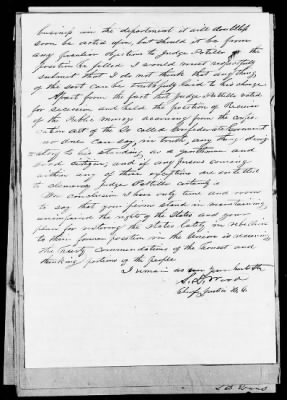 business in the department it will doubtless
soon be acted upon, but should it be from
any peculiar objection to Judge
position be filled I would most respectfully
submit that I do not think that any thing
of the sort can be truthfully laid to his charge
Apart from the fact that Judge voted
for secession and held the position of Receiver
of the Public moneys accruing from the confis-
cation act of the So Called Confederate Government
no one can say, in truth, any thing derog-
atory to his standing as a gentleman and
good citizen, and if any persons coming
within any of these exceptions are entitled
to clemency Judge certainly is
In conclusion I have only time and room
to say that your firm stand in maintaining
unimpaired the rights of the States and your
plan for restoring the States lately in rebellion
to their former position in the Union is receiving
the hearty commendations of the honest and
thinking portions of the people
I remain as ever your
Chief Justice